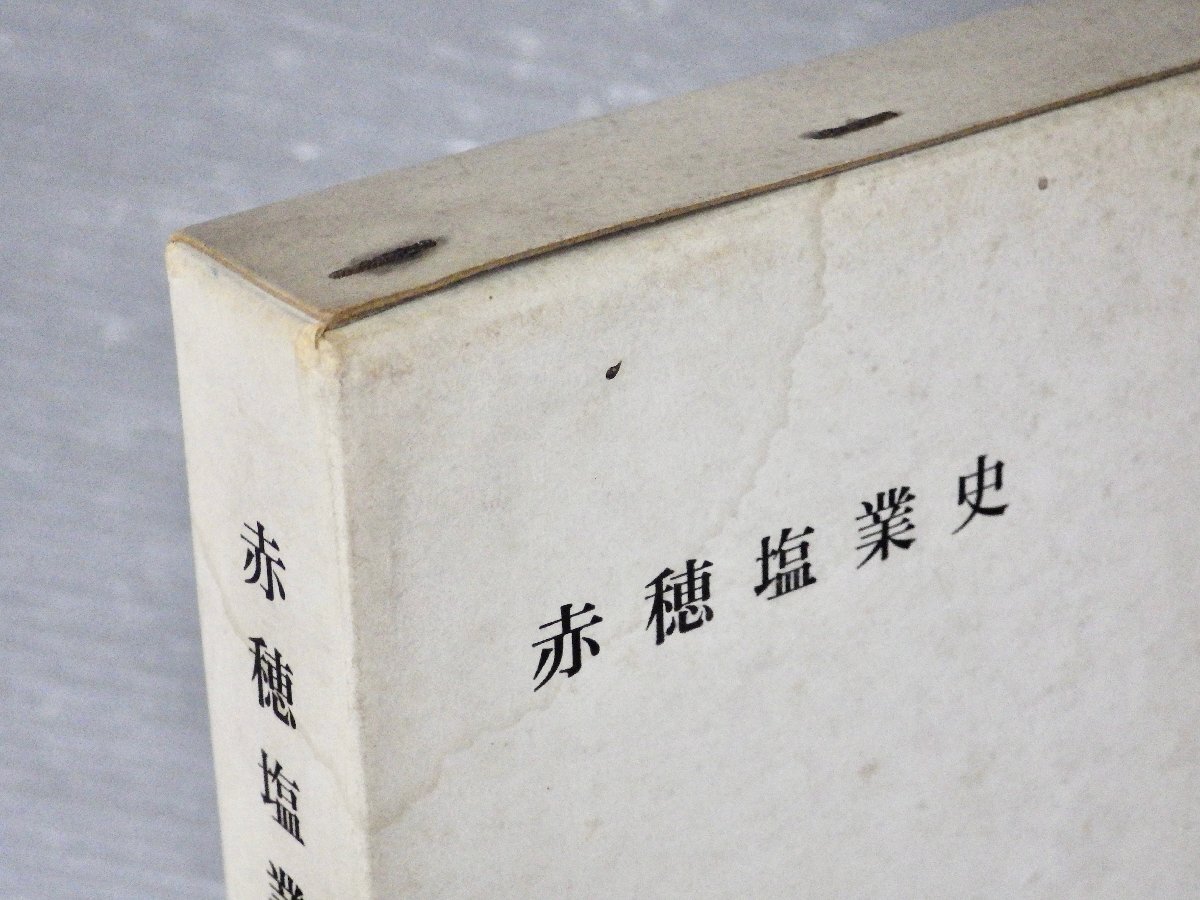 赤穂塩業史
赤穂塩業